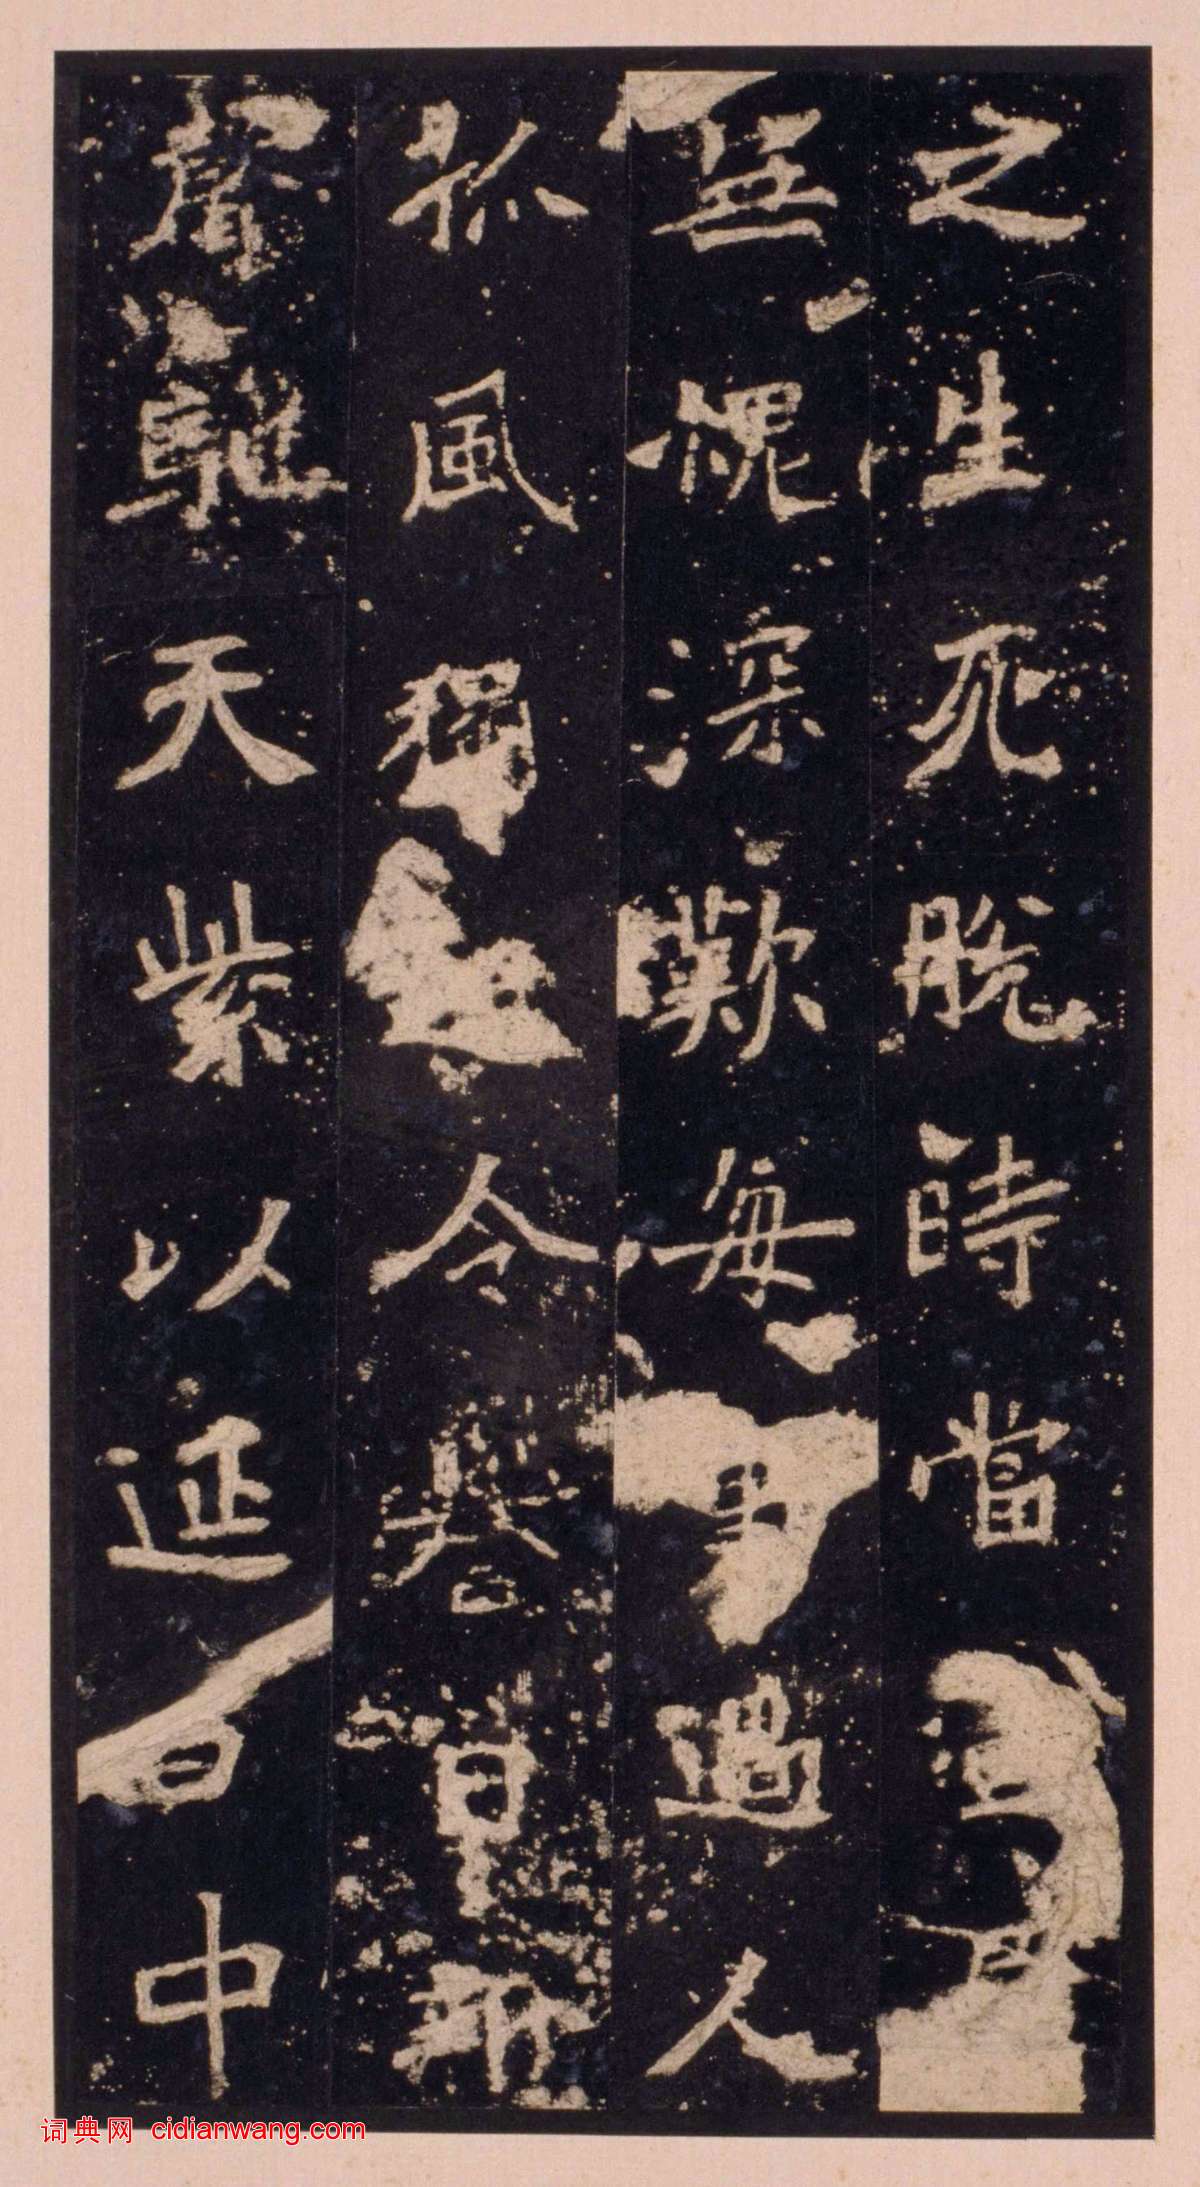 之生死脫時當
無愧深歎每事過人
孤風獨 令譽早
天紫以延 中
词典网 cidianwang.com